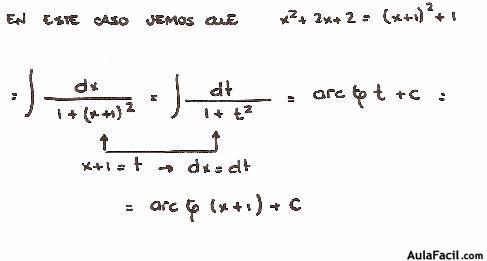 EN ESTE CASO VEMOS QUE x² + 2x + 2 = (x+1)² + 1
= ∫ dx / (1 + (x+1)²) = ∫ dt / (1 + t²) = arc tg t + c =
x+1 = t → dx = dt
= arc tg (x+1) + C
AulaFacil.com